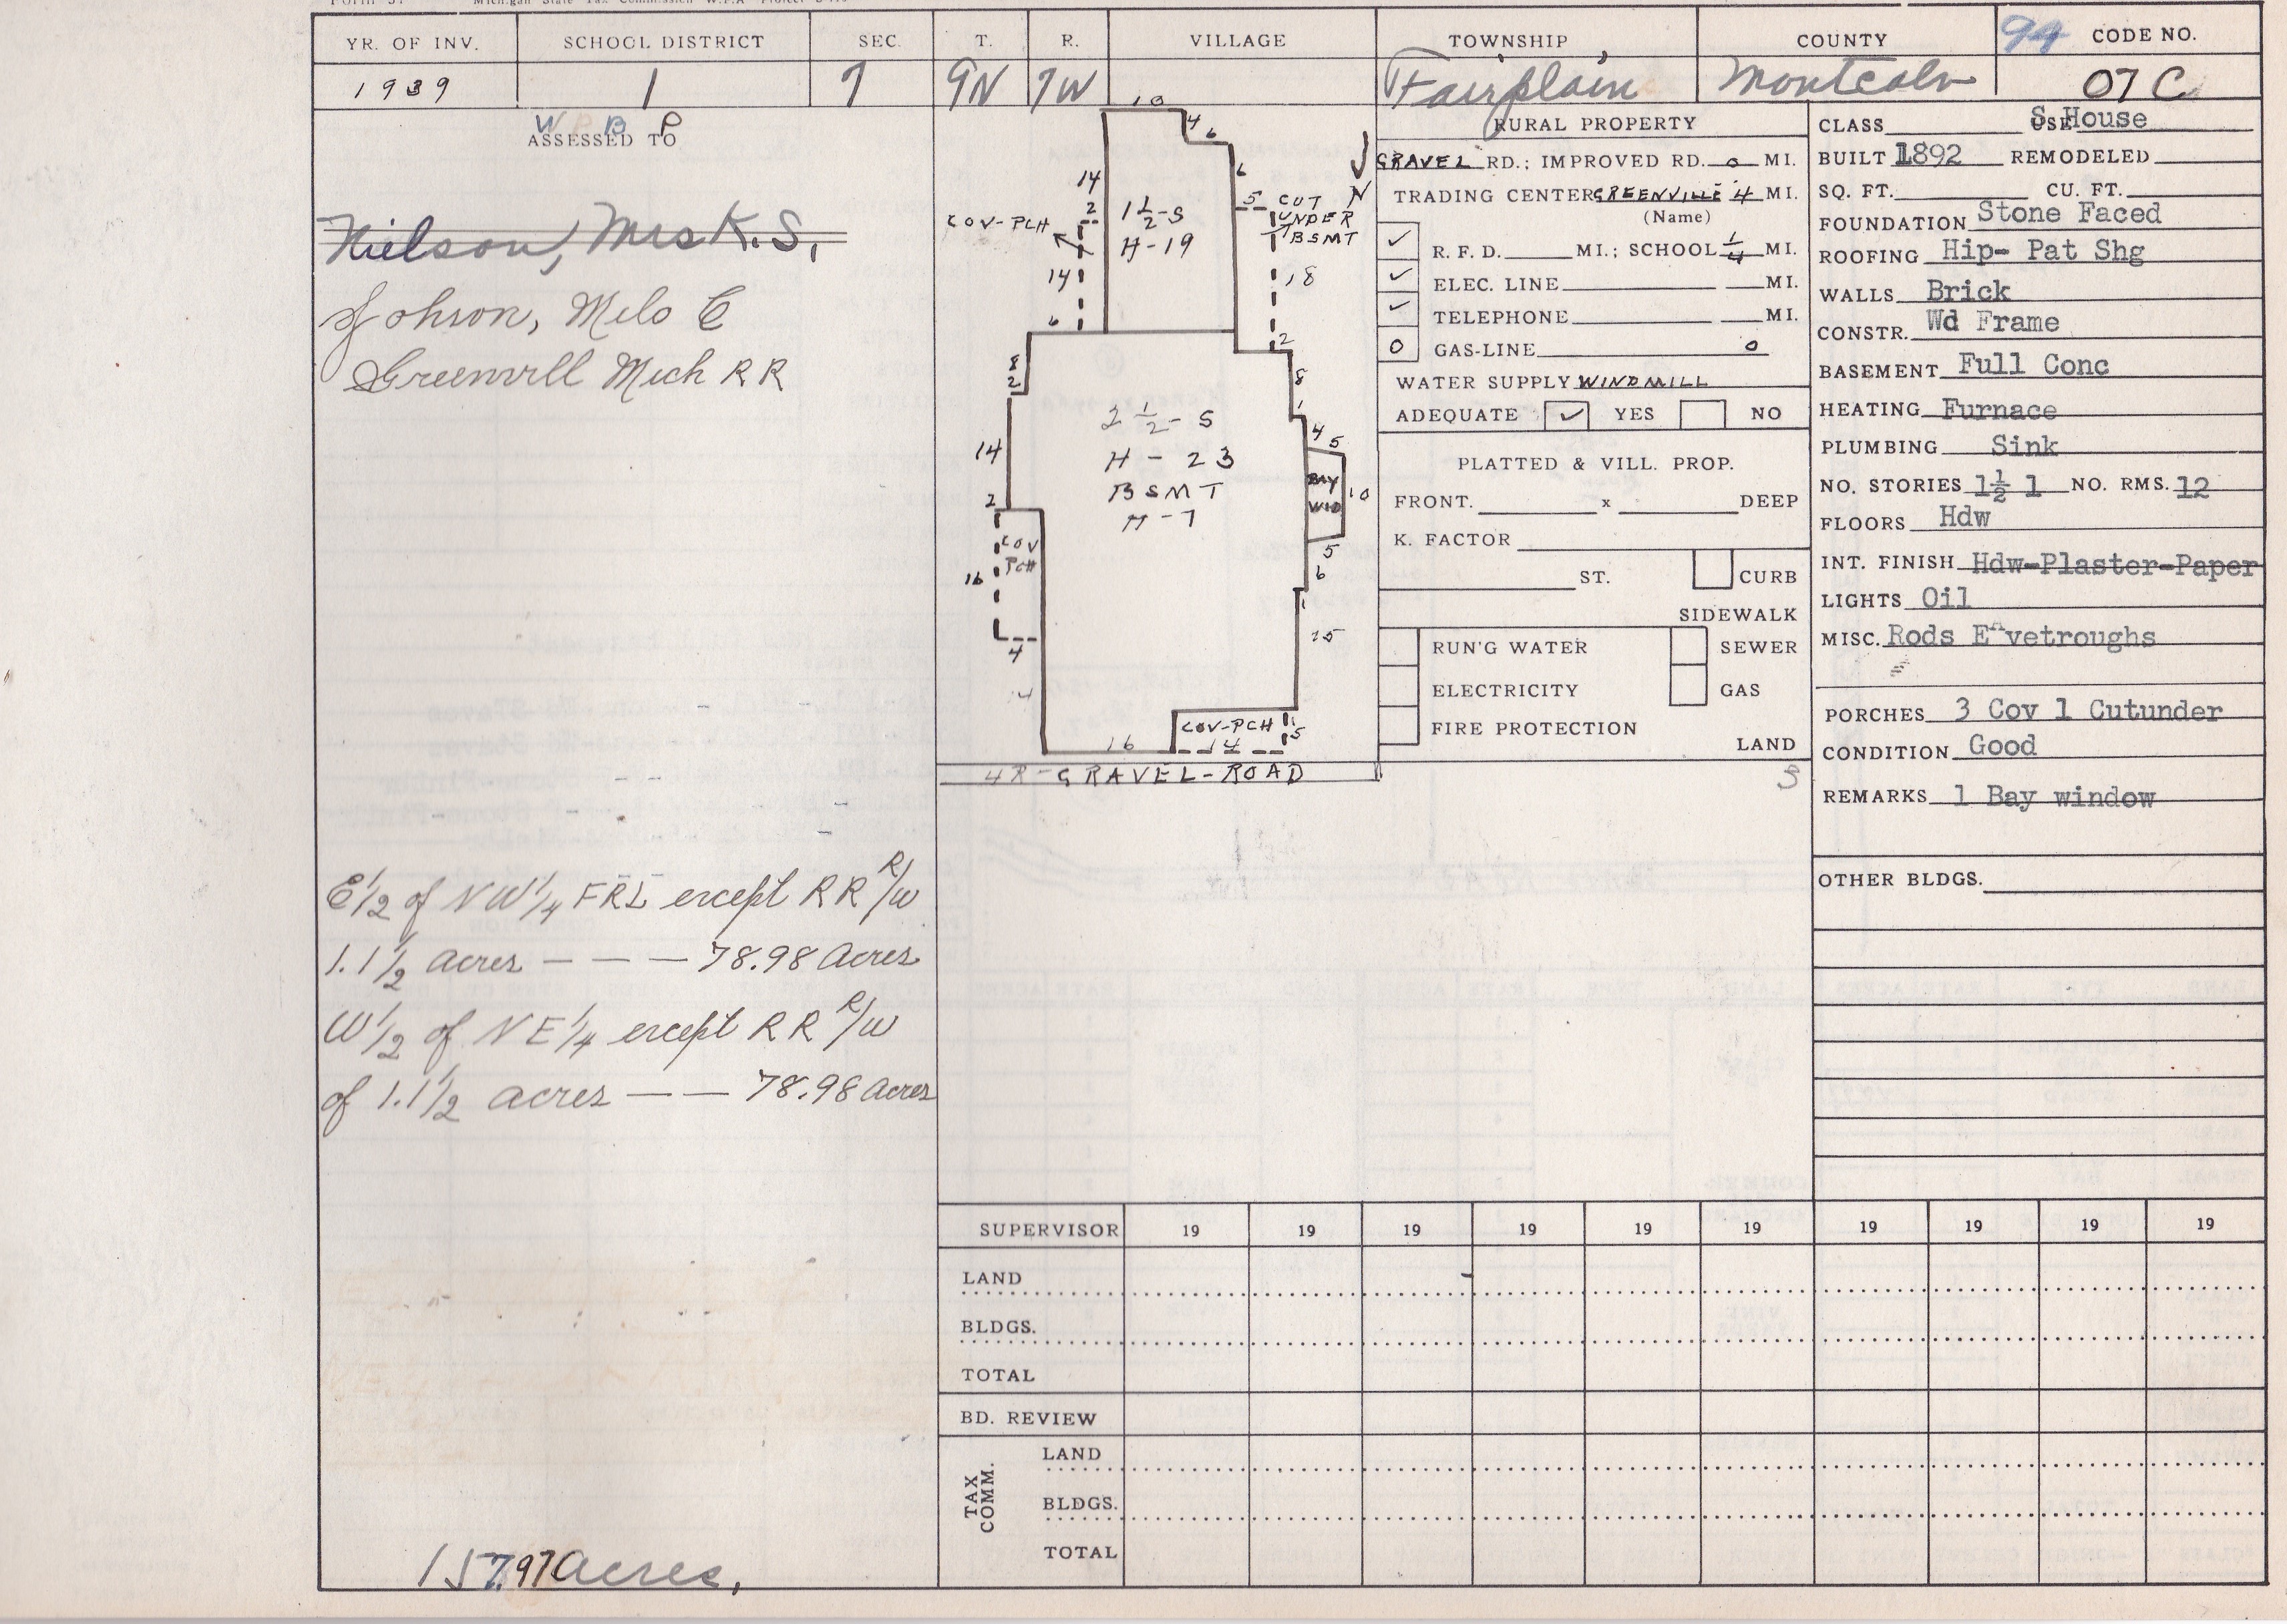 Michigan State Tax Commission W.P.A Project
YR. OF INV. SCHOOL DISTRICT SEC. T. R. VILLAGE TOWNSHIP COUNTY 94 CODE NO.
1939 1 7 9N 7W Fairplain Montcalm 07 C
W P B P
ASSESSED TO
Nielson, Mrs K.S.
Johson, Melo C
Greenvill Mich R R
E 1/2 of N W 1/4 FRL except R R R/W
1.1 1/2 acres — — — 78.98 Acres
W 1/2 of N E 1/4 except R R R/W
of 1.1 1/2 acres — — 78.98 Acres
157.97 Acres.
10
4
6
6
14
2
COV-PCH
14
6
1 1/2-S
H-19
5
CUT
UNDER
BSMT
N
18
2
8
2
8
1
14
2
2 1/2-S
H-23
BSMT
H-7
4
5
BAY
WID
10
5
6
1
COV
PCH
16
4
25
16
COV-PCH
14
1
5
4R-GRAVEL-ROAD
RURAL PROPERTY
GRAVEL RD.; IMPROVED RD. 0 MI.
TRADING CENTER GREENVILLE 4 MI.
(Name)
✓ R. F. D. MI.; SCHOOL 1/4 MI.
✓ ELEC. LINE MI.
✓ TELEPHONE MI.
0 GAS-LINE 0
WATER SUPPLY WINDMILL
ADEQUATE ✓ YES NO
PLATTED & VILL. PROP.
FRONT. x DEEP
K. FACTOR
ST. CURB
SIDEWALK
RUN'G WATER SEWER
ELECTRICITY GAS
FIRE PROTECTION
LAND
3
CLASS USE S House
BUILT 1892 REMODELED
SQ. FT. CU. FT.
FOUNDATION Stone Faced
ROOFING Hip- Pat Shg
WALLS Brick
CONSTR. Wd Frame
BASEMENT Full Conc
HEATING Furnace
PLUMBING Sink
NO. STORIES 1½ 1 NO. RMS. 12
FLOORS Hdw
INT. FINISH Hdw-Plaster-Paper
LIGHTS Oil
MISC. Rods EAvetroughs
PORCHES 3 Cov 1 Cutunder
CONDITION Good
REMARKS 1 Bay window
OTHER BLDGS.
SUPERVISOR 19 19 19 19 19 19 19 19 19 19
LAND
BLDGS.
TOTAL
BD. REVIEW
TAX COMM.
LAND
BLDGS.
TOTAL